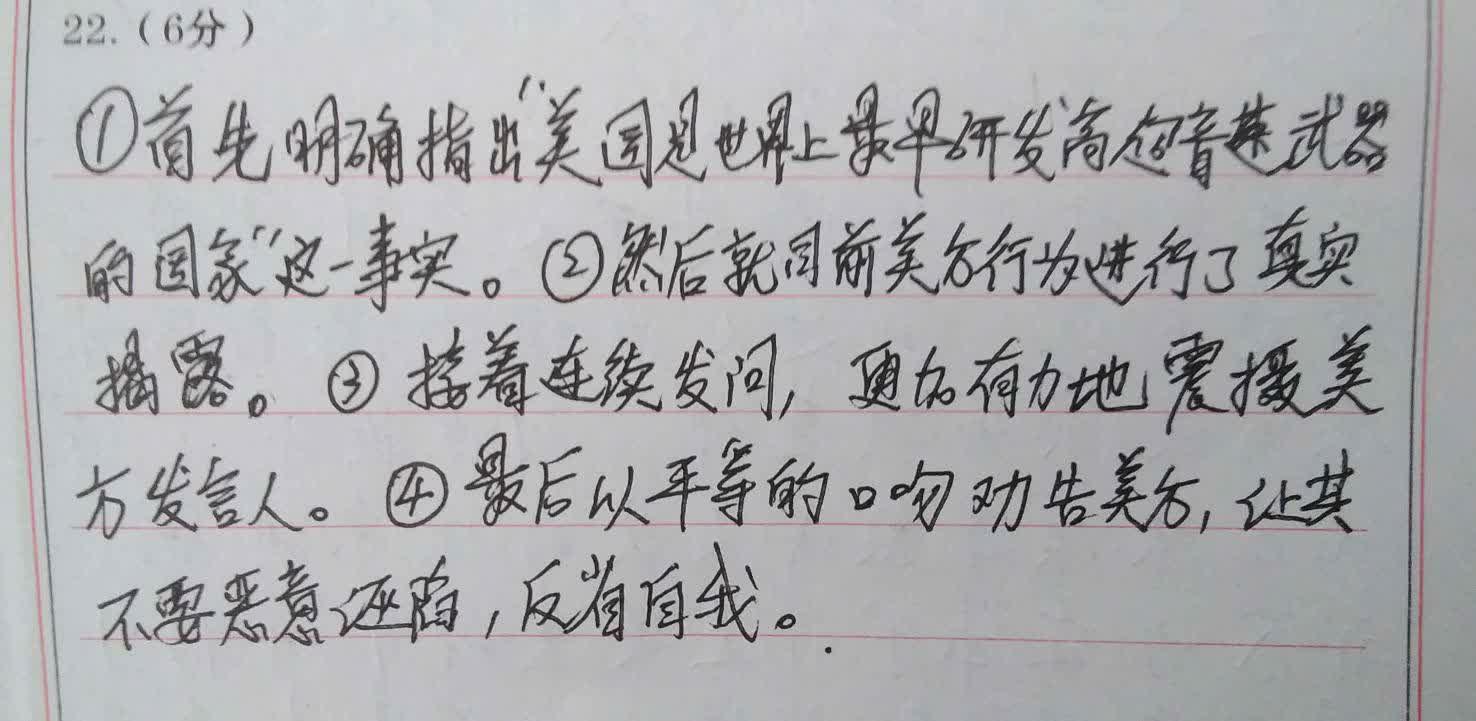 22.（6分）
①首先明确指出“美国是世界上最早研发高超音速武器
的国家”这一事实。②然后就目前美方行为进行了真实
揭露。③接着连续发问，更加有力地震摄美
方发言人。④最后以平等的口吻劝告美方，让其
不要恶意诬陷，反省自我。